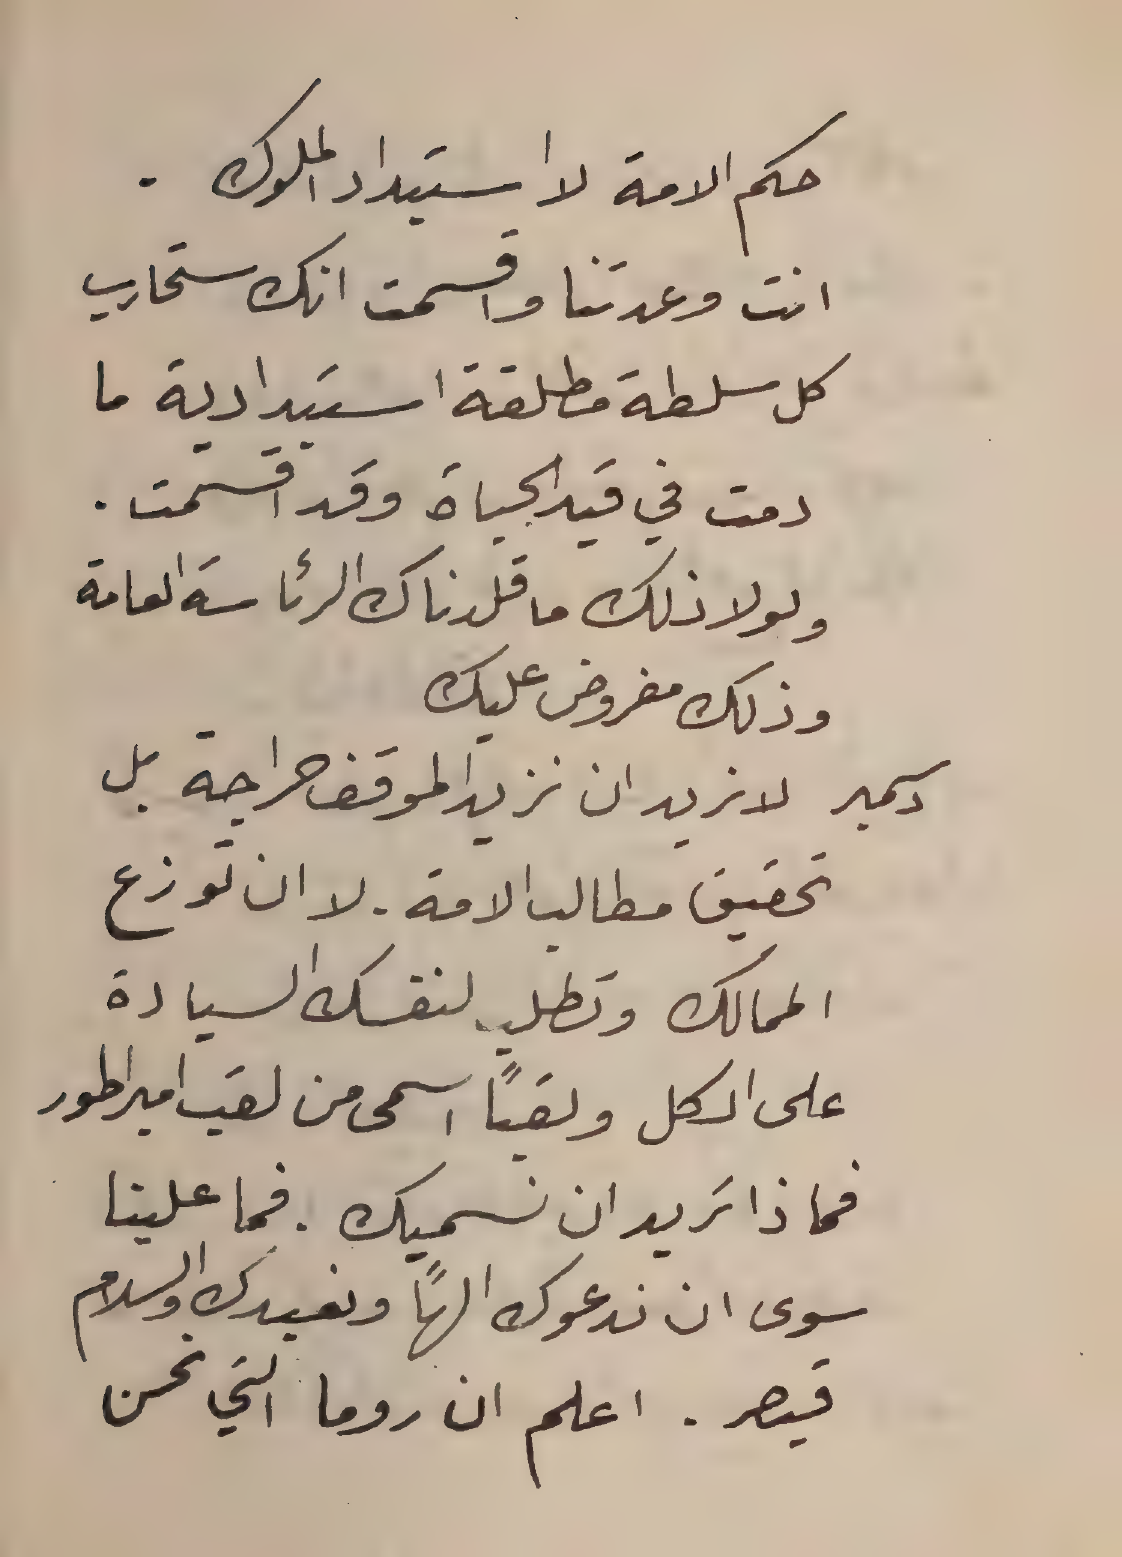 حكم الامة لا استبداد الملوك .
انت وعدتنا واقسمت انك ستحارب
كل سلطة مطلقة استبدادية ما
دمت في قيد الحياة وقد اقسمت .
ولولا ذلك ما قلدناك الرئاسة العامة
وذلك مفروض عليك
دسمبر لا نريد ان نزيد الموقف حراجة بل
تحقيق مطالب الامة . لا ان توزع
الممالك وتطلب لنفسك السيادة
على الكل ولقبًا اسمى من لقب امبراطور
فماذا تريد ان نسميك . فما علينا
سوى ان ندعوك الهًا ونعبدك والسلام
قيصر . اعلم ان روما التي نحن